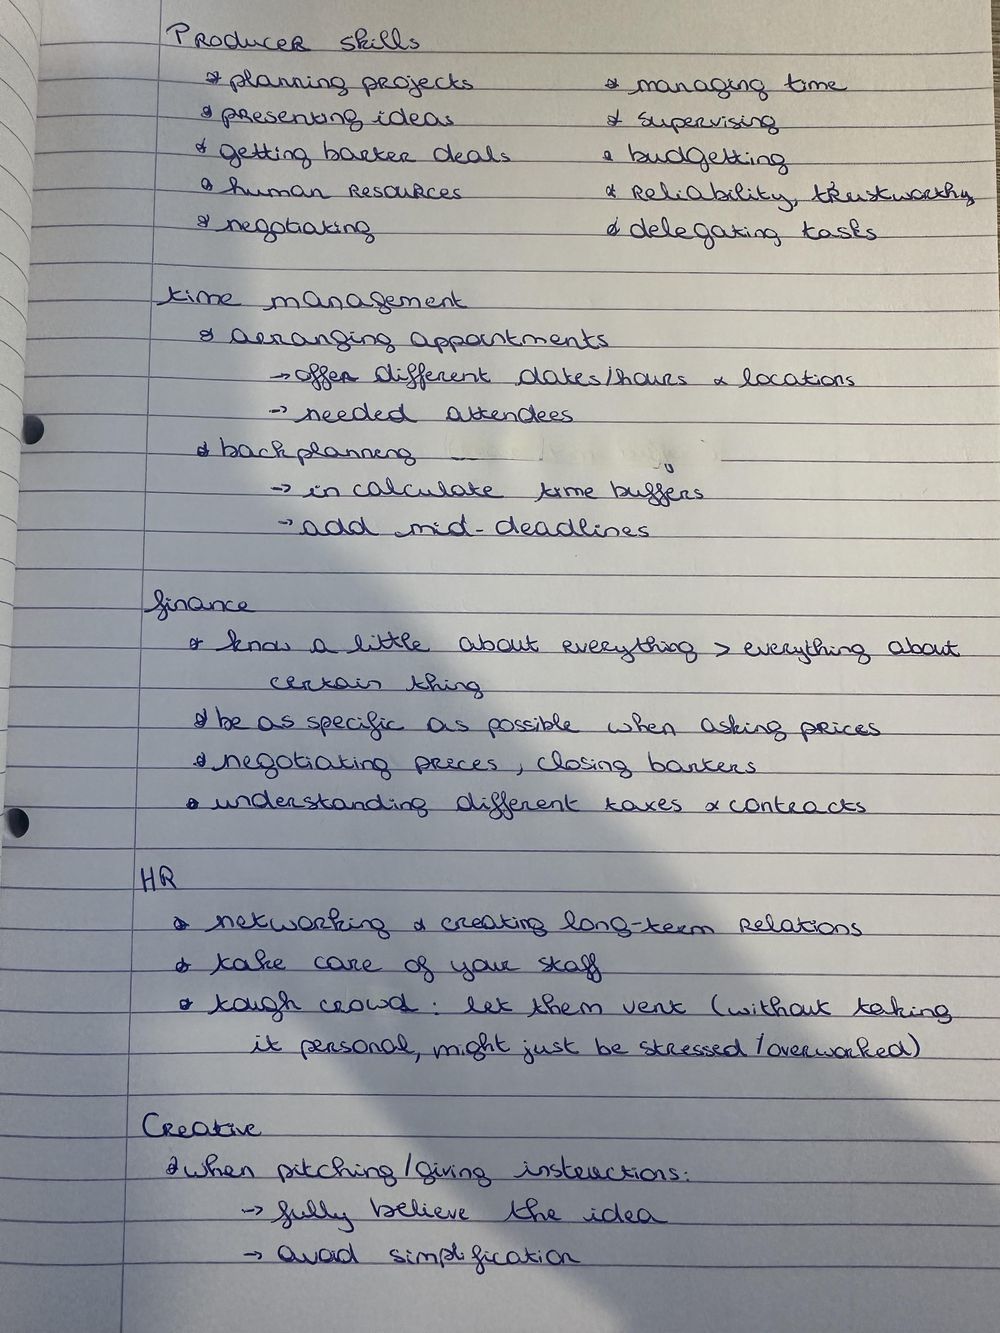 Producer skills
* planning projects
* managing time
* presenting ideas
* supervising
* getting barter deals
* budgetting
* human resources
* reliability, trustworthy
* negotiating
* delegating tasks
time management
* arranging appointments
→ offer different dates/hours & locations
→ needed attendees
* back planning
→ in calculate time buffers
→ add mid-deadlines
finance
* know a little about everything > everything about
certain thing
* be as specific as possible when asking prices
* negotiating prices, closing barters
* understanding different taxes & contracts
HR
* networking & creating long-term relations
* take care of your staff
* tough crowd: let them vent (without taking
it personal, might just be stressed/overworked)
Creative
* when pitching/giving instructions:
→ fully believe the idea
→ avoid simplification